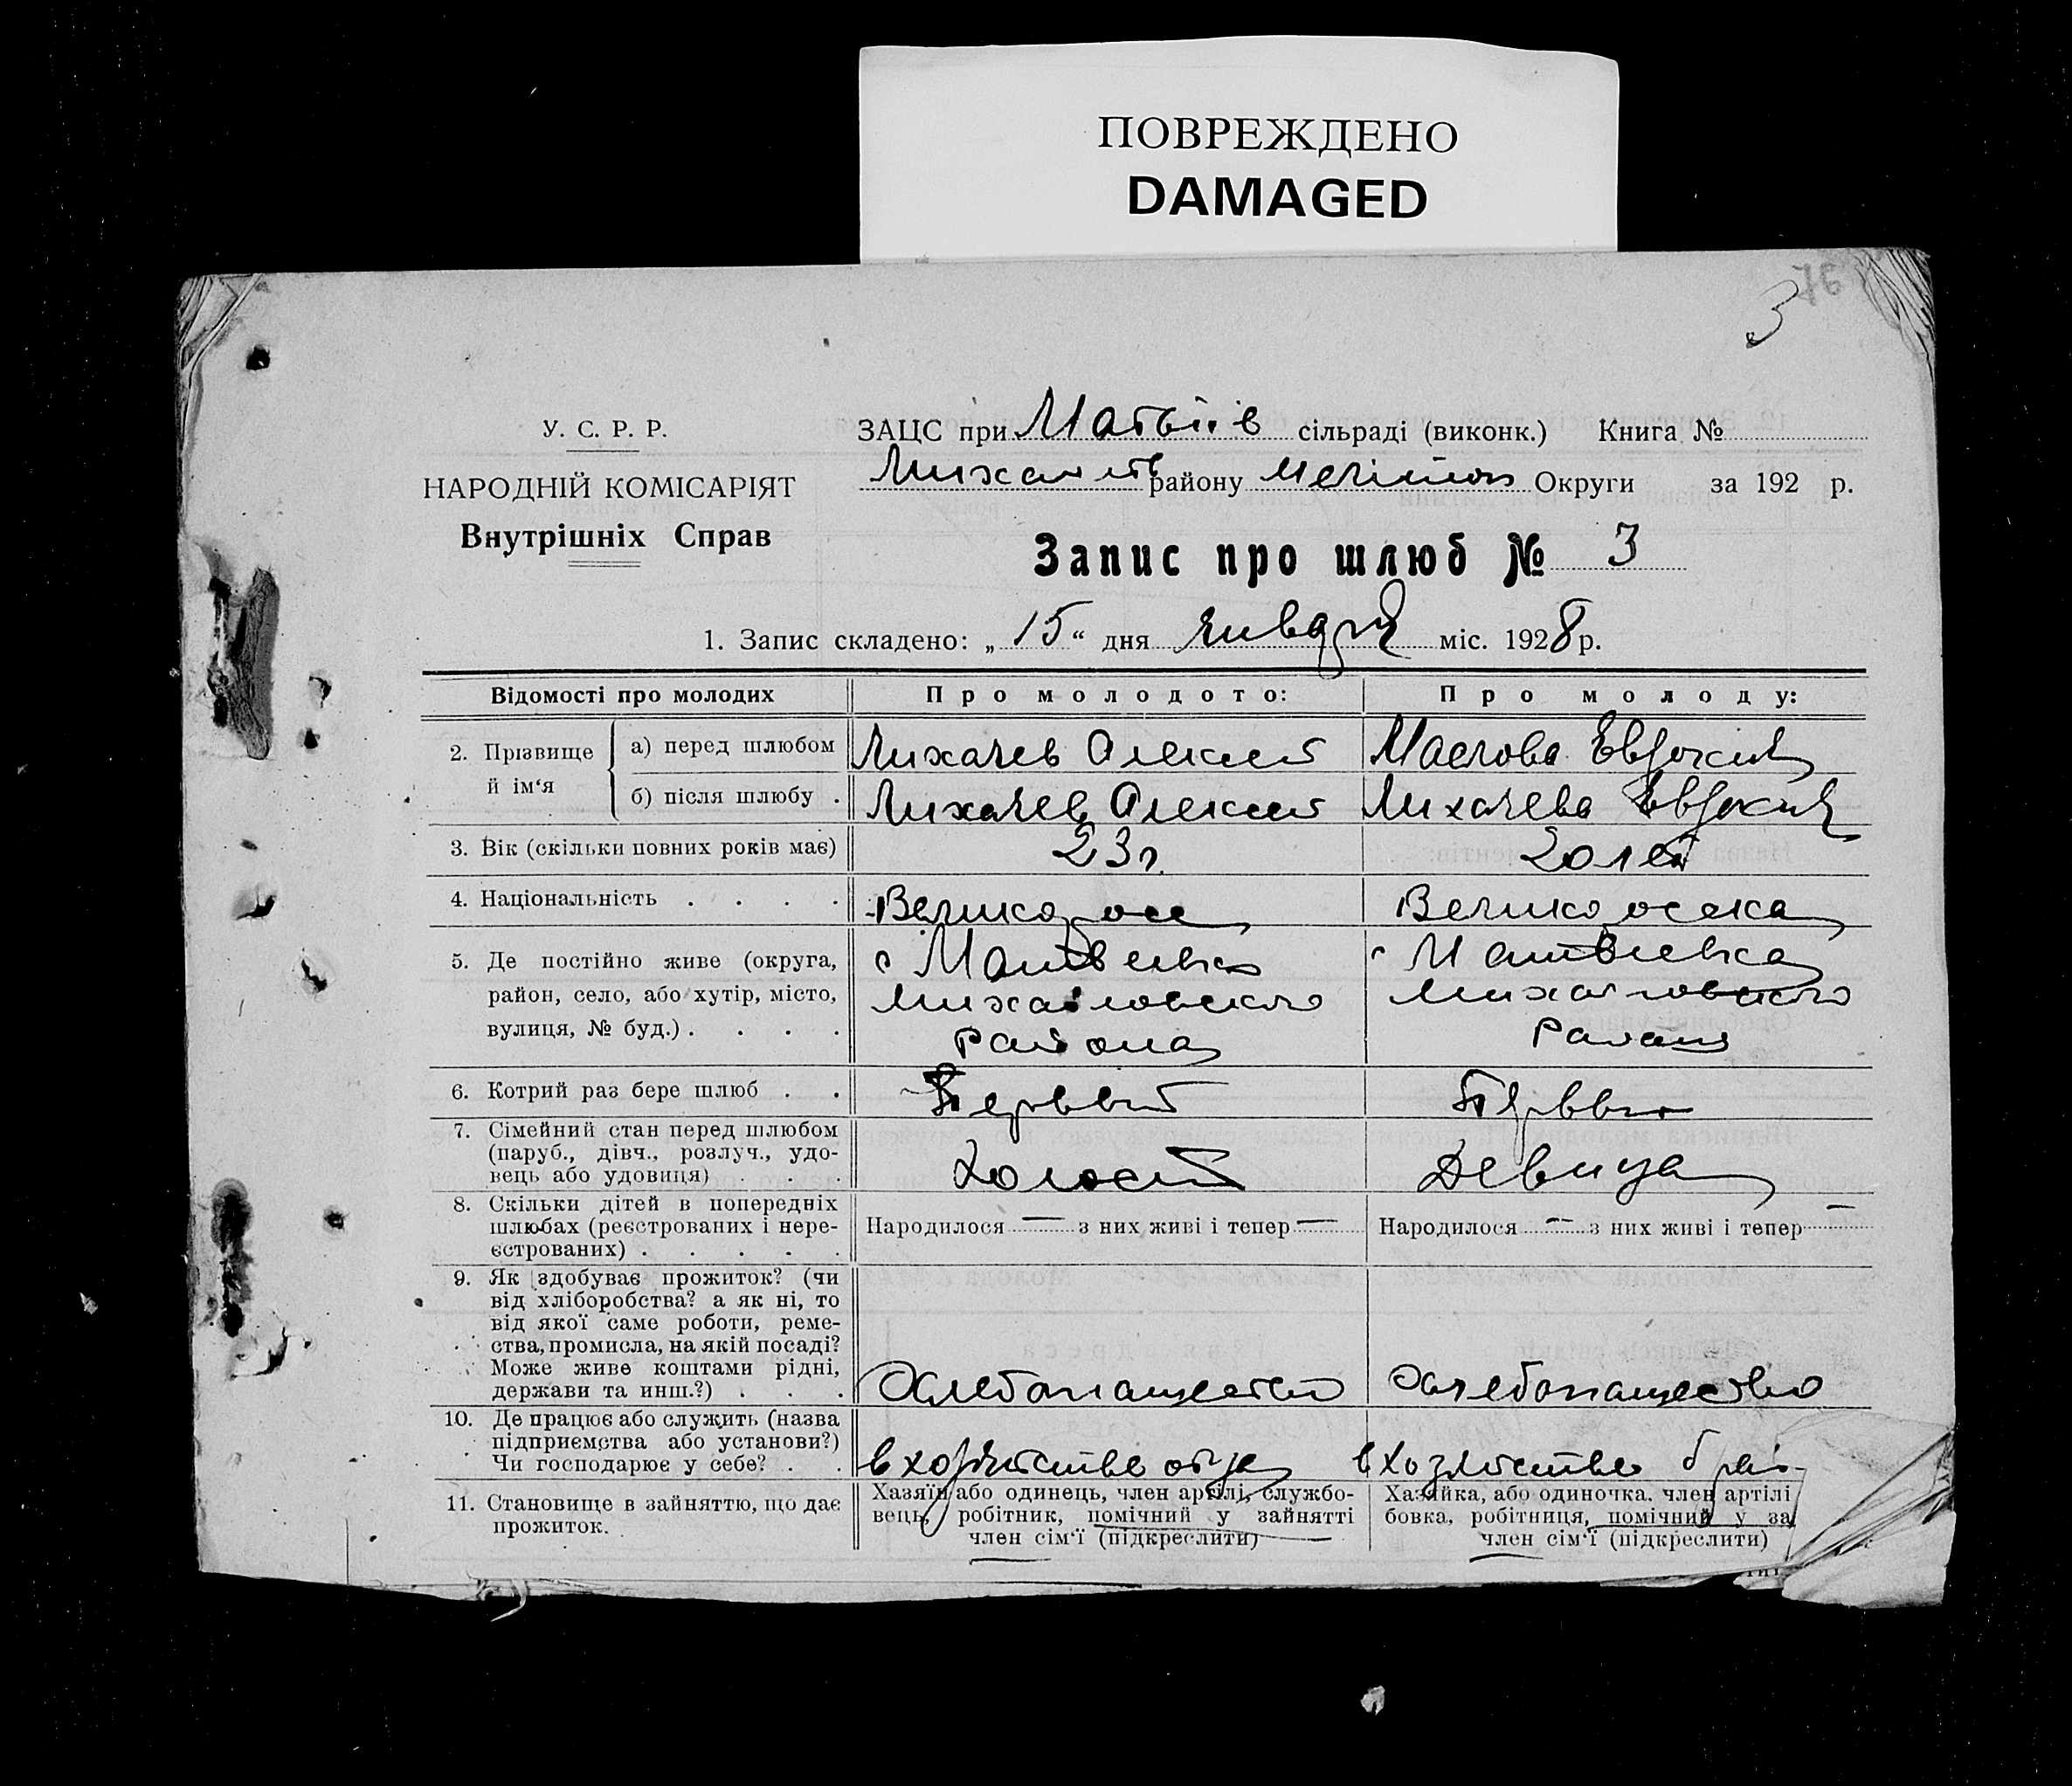 ПОВРЕЖДЕНО
DAMAGED
3
У. С. Р. Р.
НАРОДНІЙ КОМІСАРІЯТ
Внутрішніх Справ
ЗАЦС при Матвіїв сільраді (виконк.) Книга №
району Округи за 192 р.
Запис про шлюб № 3
1. Запис складено: „ 15 “ дня января міс. 1928 р.
Відомості про молодих
Про молодого:
Про молоду:
2. Прізвище й ім‘я
а) перед шлюбом
Лихачев Олексей
Евдокия
б) після шлюбу .
Лихачев Олексей
Лихачева Евдокия
3. Вік (скільки повних років має)
23 г.
20 лет
4. Національність . . . .
Великоросс
Великороска
5. Де постійно живе (округа,
район, село, або хутір, місто,
вулиця, № буд.) . . . .
с Матвеевка
Михайловского
Района
с Матвеевка
Михайловского
Района
6. Котрий раз бере шлюб . .
Первый
Первый
7. Сімейний стан перед шлюбом
(паруб., дівч., розлуч., удо-
вець або удовиця) . . .
Холост
Девица
8. Скільки дітей в попередніх
шлюбах (реєстрованих і нере-
єстрованих) . . . . .
Народилося — з них живі і тепер —
Народилося — з них живі і тепер —
9. Як здобуває прожиток? (чи
від хліборобства? а як ні, то
від якої саме роботи, реме-
ства, промисла, на якій посаді?
Може живе коштами рідні,
держави та инш.?) . . .
Хлебопашество
Хлебопашество
10. Де працює або служить (назва
підприємства або установи?)
Чи господарює у себе? . .
в хозяйстве отца
в хозяйстве
11. Становище в зайняттю, що дає
прожиток.
Хазяїн або одинець, член артілі, службо-
вець, робітник, помічний у зайнятті
член сім‘ї (підкреслити)
Хазяйка, або одиночка, член артілі
бовка, робітниця, помічний у за
член сім‘ї (підкреслити)